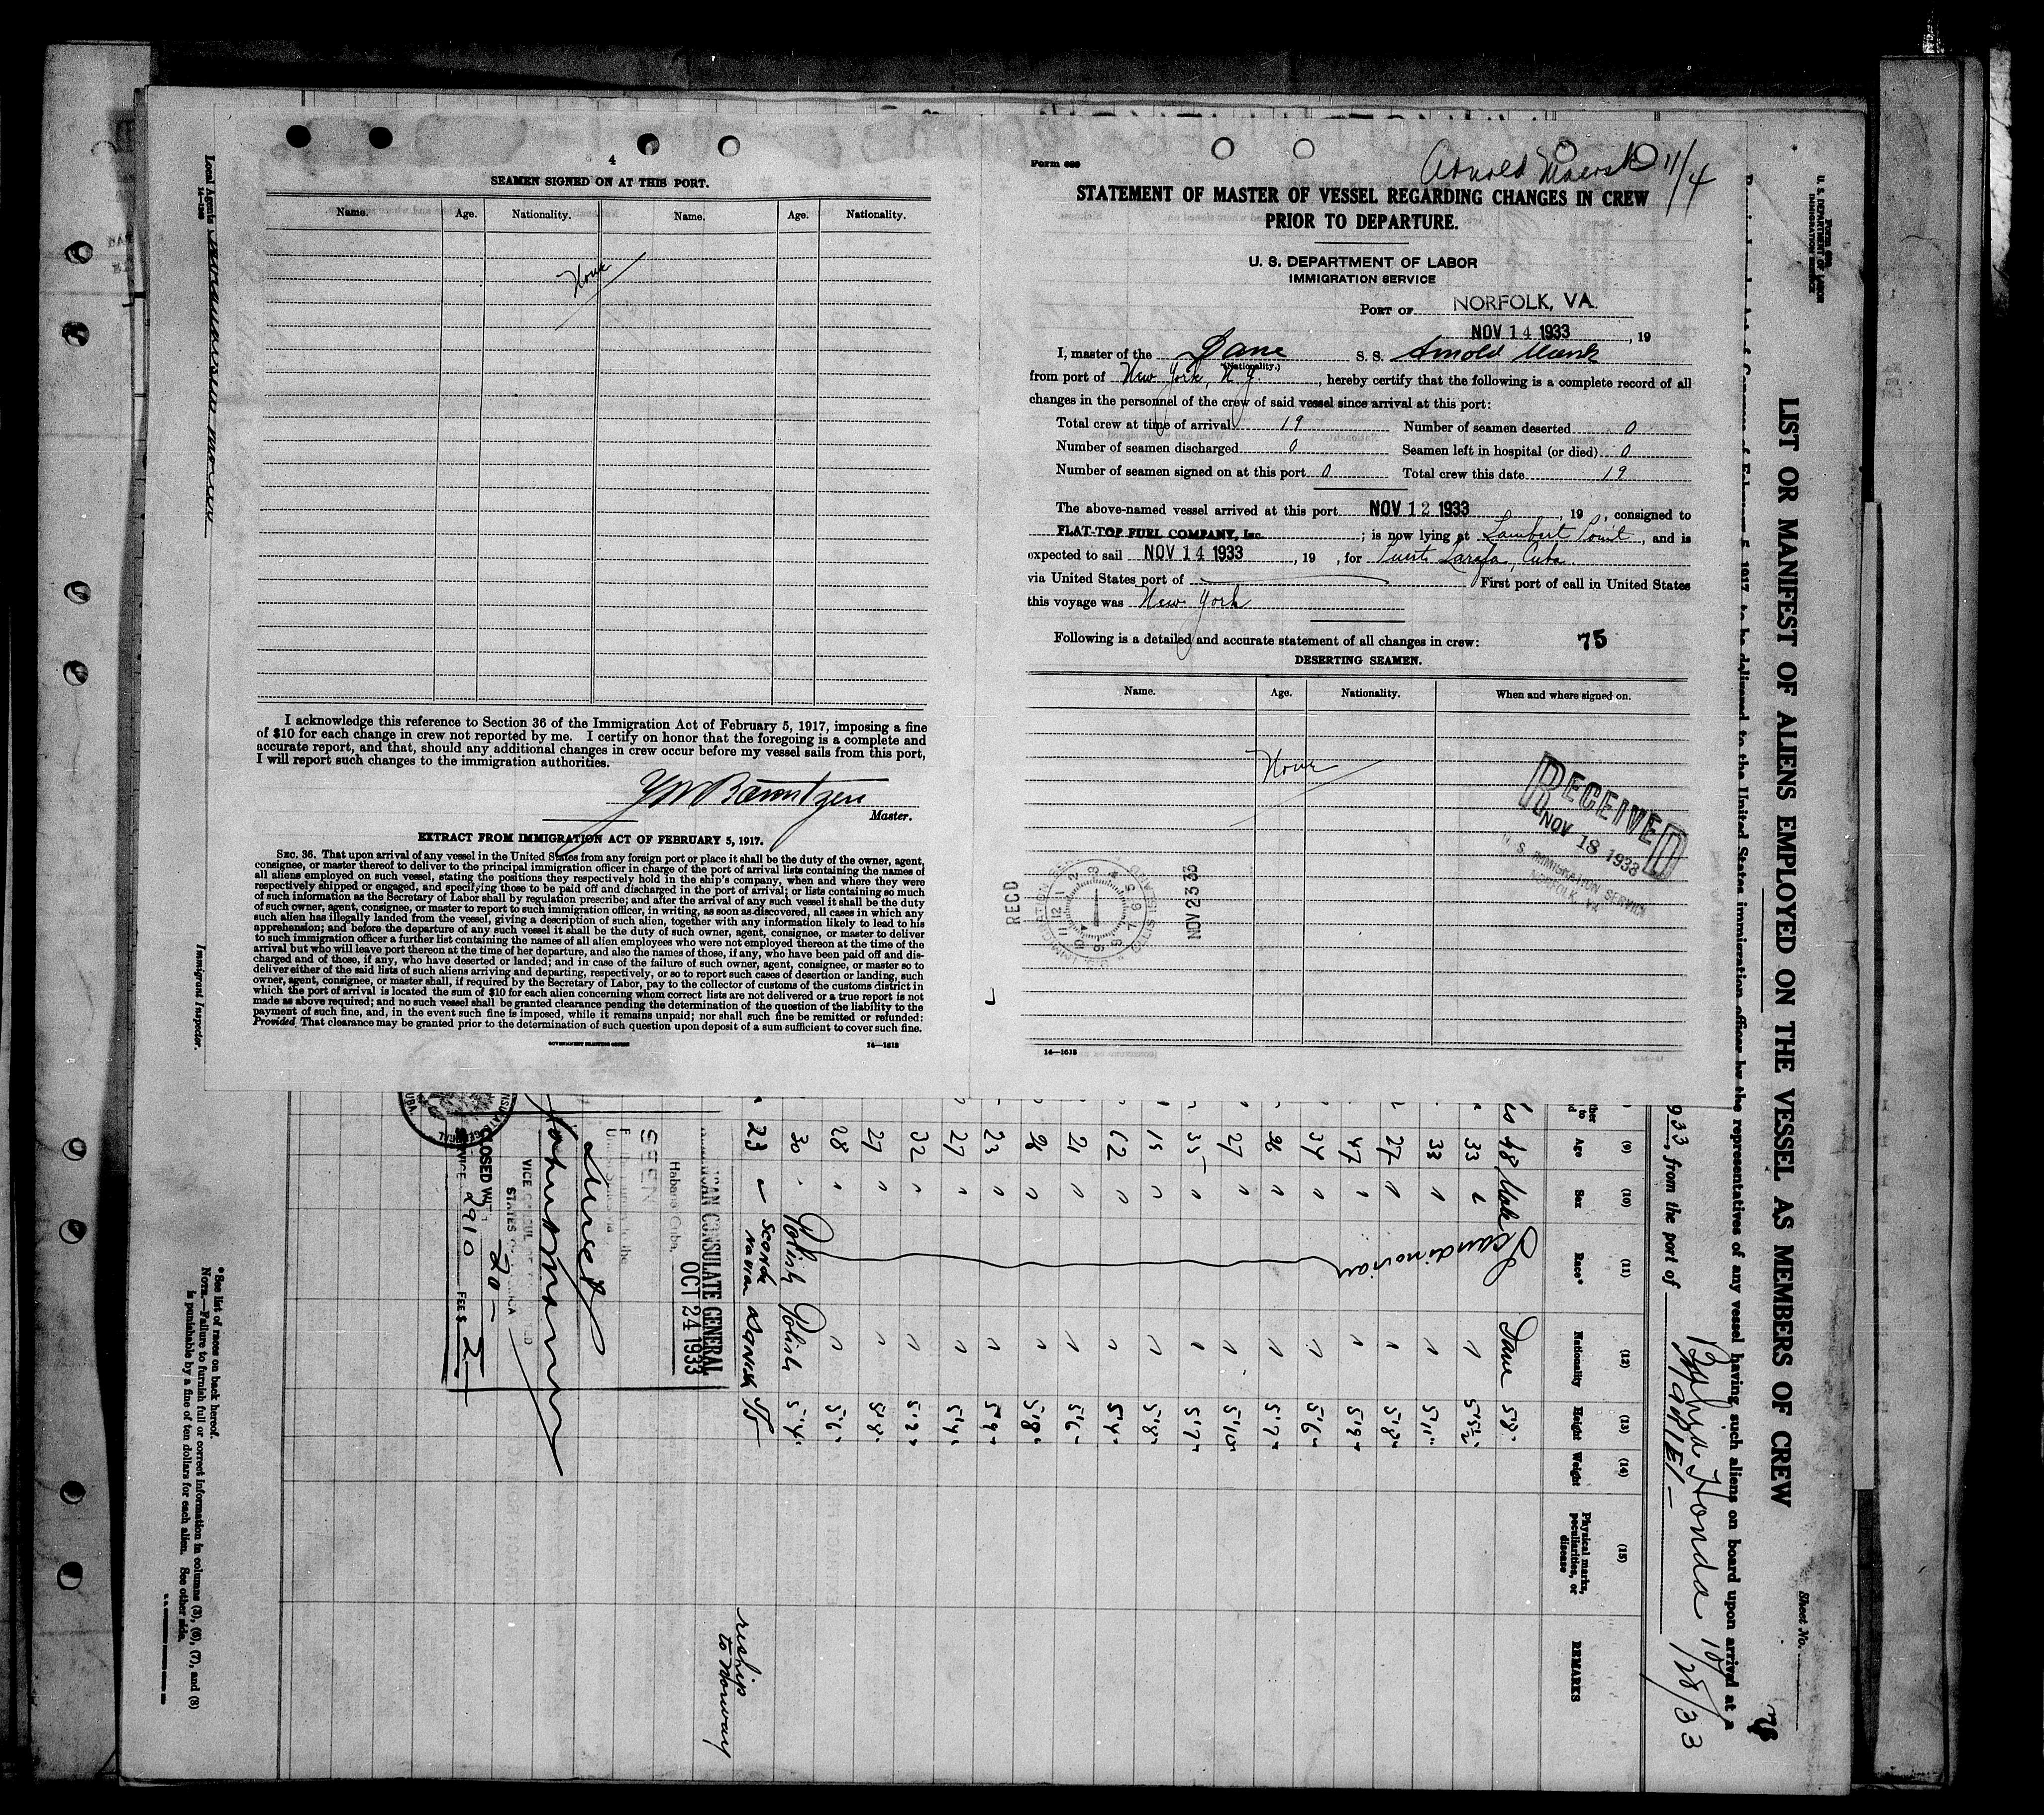 4
SEAMEN SIGNED ON AT THIS PORT.
Name. Age. Nationality. Name. Age. Nationality.
None
I acknowledge this reference to Section 36 of the Immigration Act of February 5, 1917, imposing a fine
of $10 for each change in crew not reported by me. I certify on honor that the foregoing is a complete and
accurate report, and that, should any additional changes in crew occur before my vessel sails from this port,
I will report such changes to the immigration authorities.
Master.
EXTRACT FROM IMMIGRATION ACT OF FEBRUARY 5, 1917.
SEC. 36. That upon arrival of any vessel in the United States from any foreign port or place it shall be the duty of the owner, agent,
consignee, or master thereof to deliver to the principal immigration officer in charge of the port of arrival lists containing the names of
all aliens employed on such vessel, stating the positions they respectively hold in the ship's company, when and where they were
respectively shipped or engaged, and specifying those to be paid off and discharged in the port of arrival; or lists containing so much
of such information as the Secretary of Labor shall by regulation prescribe; and after the arrival of any such vessel it shall be the duty
of such owner, agent, consignee, or master to report to such immigration officer, in writing, as soon as discovered, all cases in which any
such alien has illegally landed from the vessel, giving a description of such alien, together with any information likely to lead to his
apprehension; and before the departure of any such vessel it shall be the duty of such owner, agent, consignee, or master to deliver
to such immigration officer a further list containing the names of all alien employees who were not employed thereon at the time of the
arrival but who will leave port thereon at the time of her departure, and also the names of those, if any, who have been paid off and dis-
charged and of those, if any, who have deserted or landed; and in case of the failure of such owner, agent, consignee, or master so to
deliver either of the said lists of such aliens arriving and departing, respectively, or so to report such cases of desertion or landing, such
owner, agent, consignee, or master shall, if required by the Secretary of Labor, pay to the collector of customs of the customs district in
which the port of arrival is located the sum of $10 for each alien concerning whom correct lists are not delivered or a true report is not
made as above required; and no such vessel shall be granted clearance pending the determination of the question of the liability to the
payment of such fine, and, in the event such fine is imposed, while it remains unpaid; nor shall such fine be remitted or refunded:
Provided That clearance may be granted prior to the determination of such question upon deposit of a sum sufficient to cover such fine.
GOVERNMENT PRINTING OFFICE 14—1613
Form 689
Arnold Maersk 11/4
STATEMENT OF MASTER OF VESSEL REGARDING CHANGES IN CREW
PRIOR TO DEPARTURE.
U. S. DEPARTMENT OF LABOR
IMMIGRATION SERVICE
PORT OF NORFOLK, VA.
NOV 14 1933, 19
I, master of the Dane S. S. Arnold Maersk
(Nationality.)
from port of New York, N.Y., hereby certify that the following is a complete record of all
changes in the personnel of the crew of said vessel since arrival at this port:
Total crew at time of arrival 19 Number of seamen deserted 0
Number of seamen discharged 0 Seamen left in hospital (or died) 0
Number of seamen signed on at this port 0 Total crew this date 19
The above-named vessel arrived at this port NOV 12 1933, 19 , consigned to
FLAT-TOP FUEL COMPANY, Inc. ; is now lying at Lambert Point, and is
expected to sail NOV 14 1933, 19 , for Cuba
via United States port of First port of call in United States
this voyage was New York
Following is a detailed and accurate statement of all changes in crew: 75
DESERTING SEAMEN.
Name. Age. Nationality. When and where signed on.
None
RECEIVED
NOV 18 1933
U. S. IMMIGRATION SERVICE
NORFOLK, VA
RECD
NOV 23 33
14—1613
Local Agents
Immigrant Inspector.
U. S. DEPARTMENT OF LABOR
IMMIGRATION SERVICE
LIST OR MANIFEST OF ALIENS EMPLOYED ON THE VESSEL AS MEMBERS OF CREW
Sheet No.
to be delivered to the United States immigration officer by the representatives of any vessel having such aliens on board upon arrival at a
933, from the port of Bahia Honda 10/28/33
MARIEL
(9) (10) (11) (12) (13) (14) (15)
Age Sex Race* Nationality Height Weight Physical marks, peculiarities, or disease REMARKS
48 Male Scandinavian Dane 5'8"
33 5'5½"
33 5'11"
27 5'8"
47 5'9"
34 5'6"
36 5'7"
27 5'10"
35 5'7"
19 5'8"
62 5'4"
21 5'6"
26 5'8"
23 5'9"
27 5'4"
32
27 5'8"
28 5'6"
30 Polish Polish 5'4"
23 Scandinavian Danish reship to Norway
AMERICAN CONSULATE GENERAL
Habana, Cuba. OCT 24 1933
SEEN
VICE CONSUL
SERVICE 2910 FEE $ 2
*See list of races on back hereof.
NOTE.—Failure to furnish full or correct information in columns (3), (6), (7), and (8)
is punishable by a fine of ten dollars for each alien. See other side.